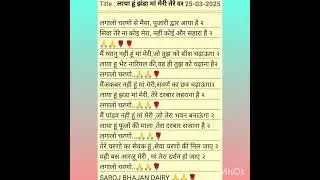 Title : लाया हूं झंडा मां मेरी तेरे दर 25-03-2025
लगालो चरणो से मैया, पुजारी द्वार आया है २
सिवा तेरे ना कोइ मेरा, नही कोई और सहारा है
🙏🙏🌹लगालो चरणो...🌹
मैं ध्यानु नहीं हूं मां मेरी,जो तुझ को शीश चढ़ाऊंगा
लाया हूं भेंट नारियल की,वह ही तुझ को चढ़ाना है२
लगालो चरणो...🙏🌹
मैंअकबर नहीं हूं मां मेरी,सवर्ण का छत्र चढ़ाऊंगा२
लाया हूं झंडा मां मेरी, तेरे दरबार लहराना है
लगालो चरणो...🙏🌹
मैं पांडव नही हूं मां मेरी ,जो तेरा भवन बनाऊंगा २
लाया हूं फूलों की माला ,तेरा दरबार सजाना है २
लगालो चरणो...🙏🌹
तेरे चरणो का सेवक हूं ,सेवा चरणो की मिल जाए २
यही बस आरजू मेरी , मां तेरा दर्शन हो जाए २
लगालो चरणो...🙏🌹
SAROJ BHAJAN DAIRY 🙏🌹🌹